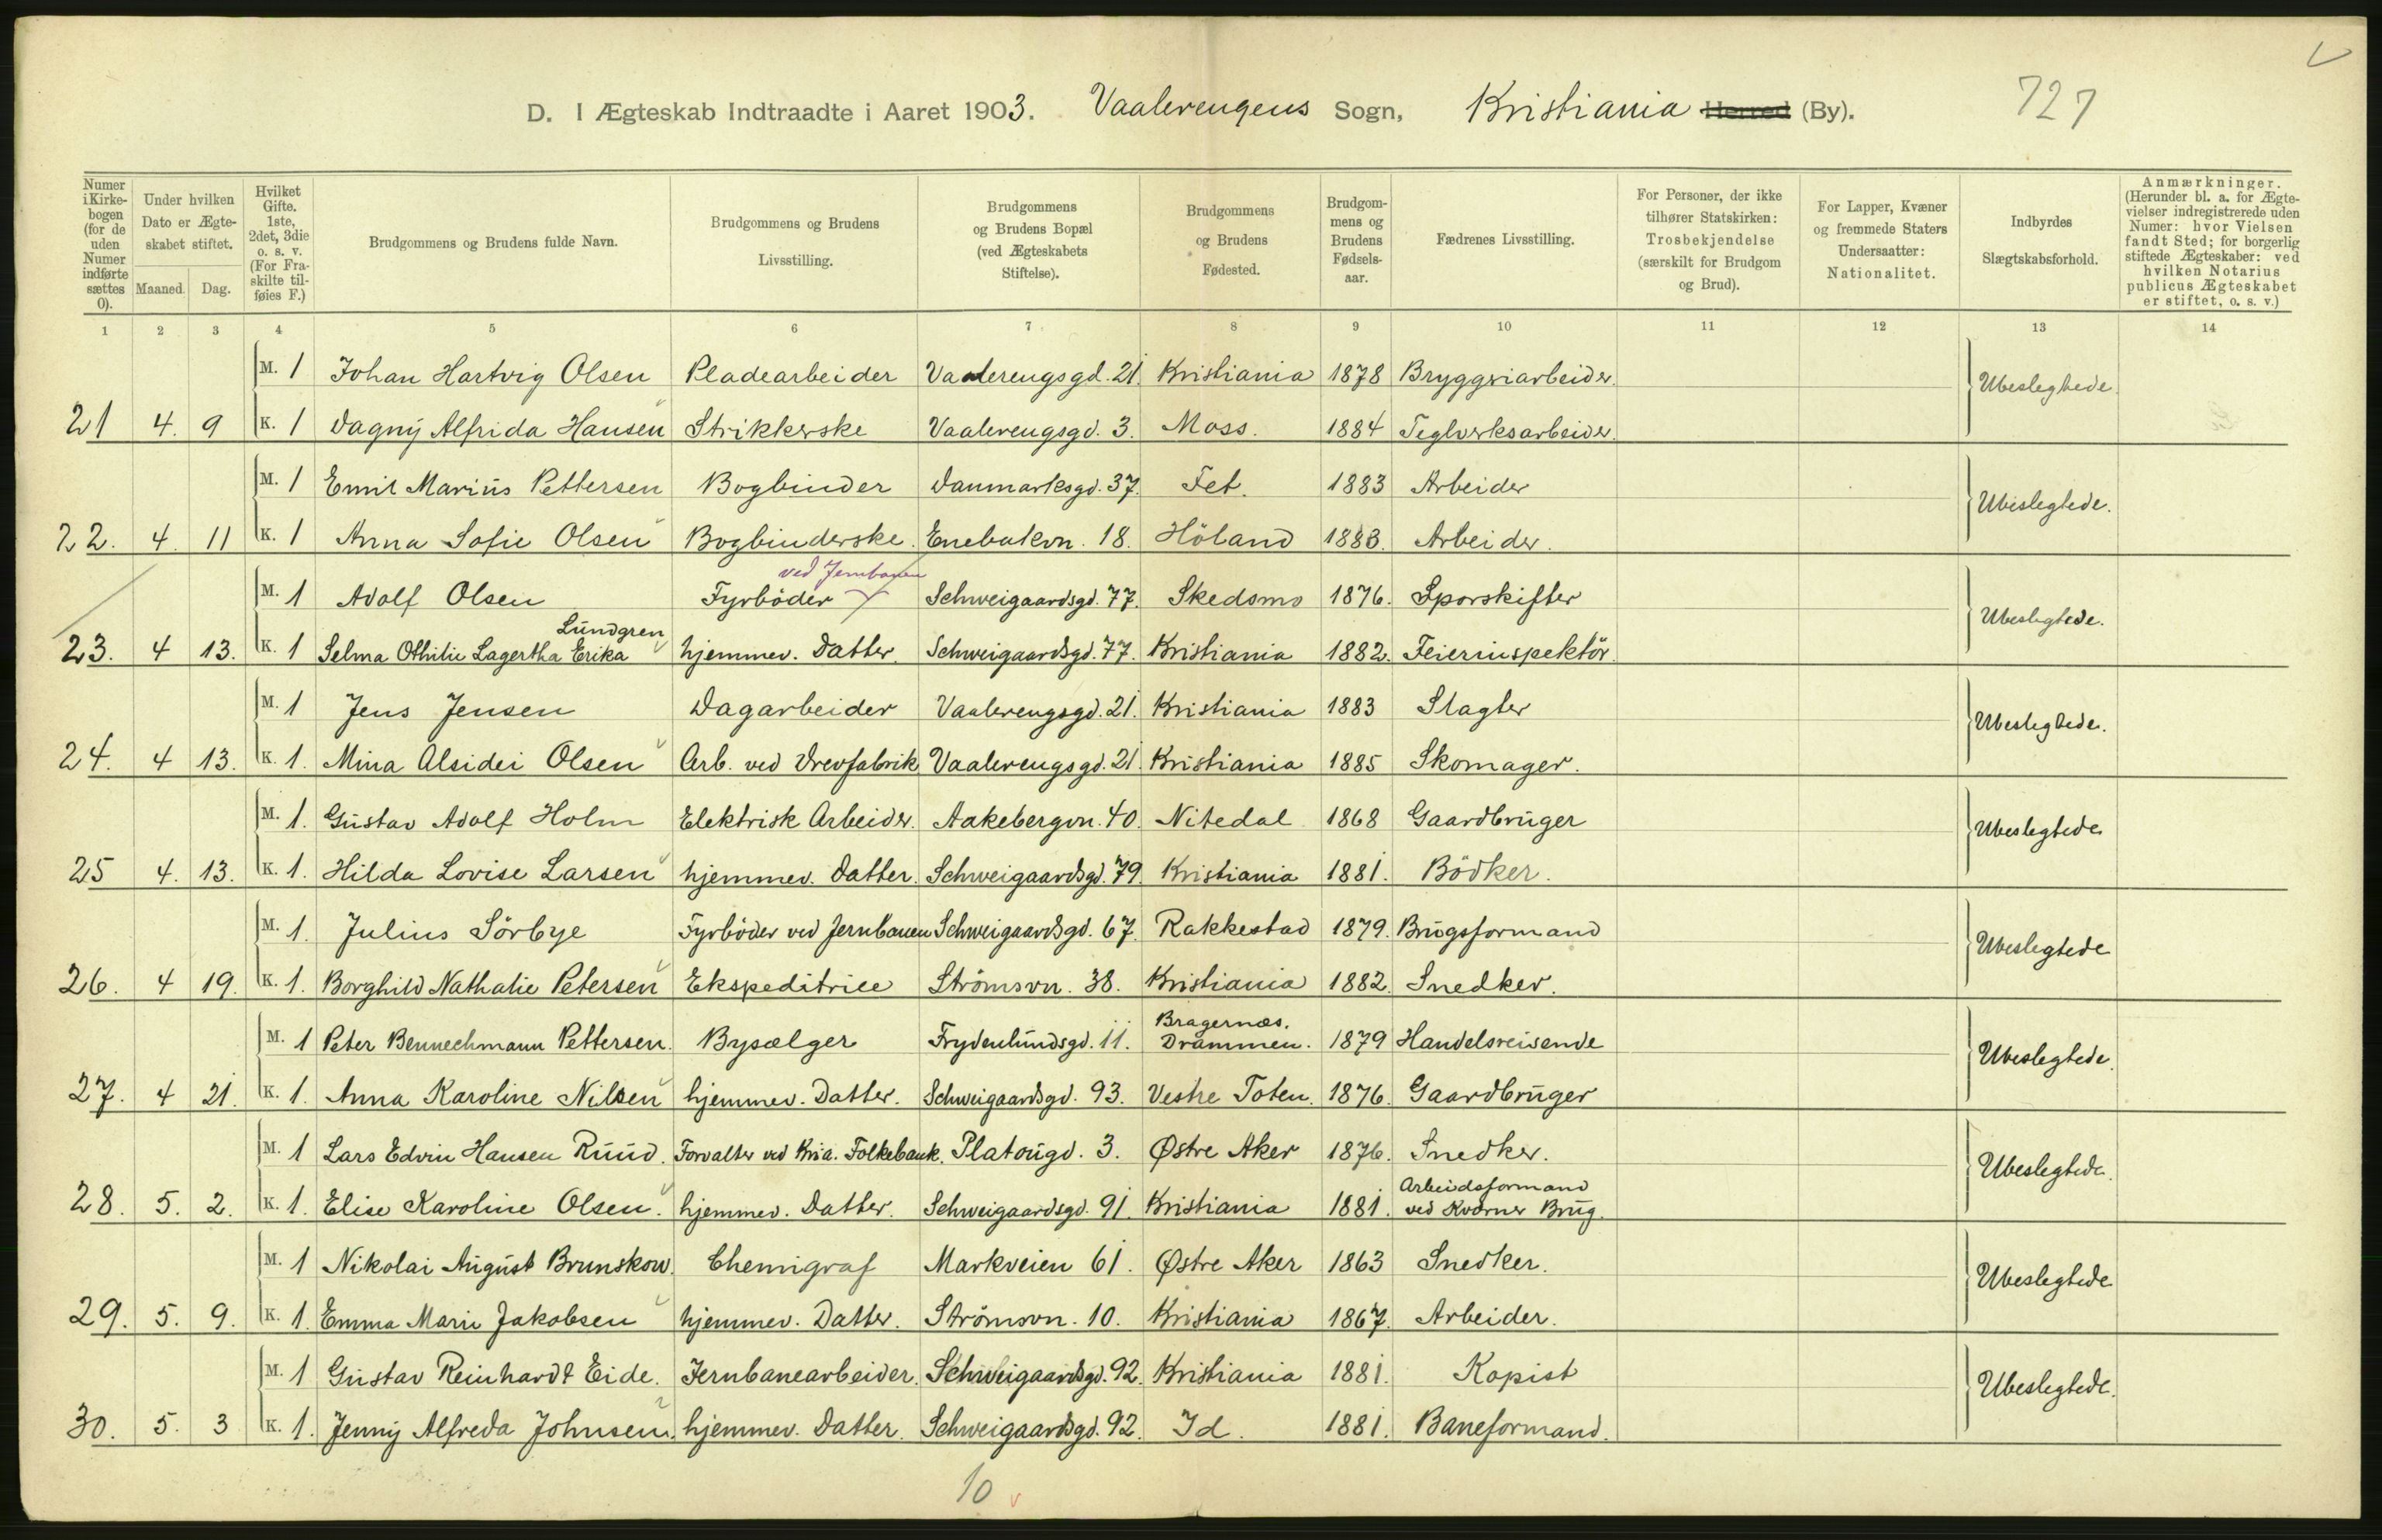 727
D. I Ægteskab Indtraadte i Aaret 1903. Vaalerengens Sogn, Kristiania Herred (By).
Numer i Kirkebogen (for de uden Numer indførte sættes 0).
Under hvilken Dato er Ægteskabet stiftet.
Maaned. Dag.
Hvilket Gifte. 1ste, 2det, 3die o. s. v. (For Fraskilte tilføies F.)
Brudgommens og Brudens fulde Navn.
Brudgommens og Brudens Livsstilling.
Brudgommens og Brudens Bopæl (ved Ægteskabets Stiftelse).
Brudgommens og Brudens Fødested.
Brudgommens og Brudens Fødselsaar.
Fædrenes Livsstilling.
For Personer, der ikke tilhører Statskirken: Trosbekjendelse (særskilt for Brudgom og Brud).
For Lapper, Kvæner og fremmede Staters Undersaatter: Nationalitet.
Indbyrdes Slægtskabsforhold.
Anmærkninger. (Herunder bl. a. for Ægtevielser indregistrerede uden Numer: hvor Vielsen fandt Sted; for borgerlig stiftede Ægteskaber: ved hvilken Notarius publicus Ægteskabet er stiftet, o. s. v.)
1 2 3 4 5 6 7 8 9 10 11 12 13 14
M. 1 Johan Hartvig Olsen Pladearbeider Vaalerengsgd. 21. Kristiania 1878 Bryggriarbeider. Ubeslegtede
21 4. 9 K. 1 Dagny Alfrida Hansen Strikkerske Vaalerengsgd. 3. Moss. 1884 Teglverksarbeider.
M. 1 Emil Marius Pettersen Bogbinder Danmarksgd. 37. Fet. 1883 Arbeider Ubeslegtede.
22. 4. 11 K. 1 Anna Sofie Olsen Bogbinderske. Enebakvn. 18. Höland 1883. Arbeider.
ved Jernbanen
M. 1 Adolf Olsen Fyrböder Schweigaardsgd. 77. Skedsmo 1876. Sporskifter Ubeslegtede.
Lundgren
23. 4 13. K. 1 Selma Othilie Lagertha Erika hjemmev. Datter. Schweigaardsgd. 77. Kristiania 1882. Feierinspektör.
M. 1 Jens Jensen Dagarbeider Vaalerengsgd. 21. Kristiania 1883 Slagter Ubeslegtede.
24. 4 13. K. 1. Mina Alsidei Olsen Arb. ved Drevfabrik Vaalerengsgd. 21. Kristiania 1885 Skomager.
M. 1. Gustav Adolf Holm Elektrisk Arbeider. Aakebergvn. 40. Nitedal 1868 Gaardbruger Ubeslegtede
25 4. 13. K. 1. Hilda Lovise Larsen hjemmev. Datter. Schweigaardsgd. 79. Kristiania 1881. Bödker.
M. 1. Julius Sörbye Fyrböder ved Jernbanen Schweigaardsgd. 67. Rakkestad 1879. Brugsformand Ubeslegtede
26. 4 19. K. 1. Borghild Nathalie Petersen Ekspeditrice Strömsvn. 38. Kristiania 1882. Snedker.
Bragernæs.
M. 1 Peter Bennechmann Pettersen. Bysælger Frydenlundsgd. 11. Drammen. 1879 Handelsreisende Ubeslegtede.
27. 4 21. K. 1. Anna Karoline Nilsen hjemmev. Datter. Schweigaardsgd. 93. Vestre Toten. 1876. Gaardbruger
M. 1 Lars Edvin Hansen Ruud. Forvalter ved Kria. Folkebank. Platougd. 3. Østre Aker 1876. Snedker. Ubeslegtede.
Arbeidsformand
28. 5. 2. K. 1. Elise Karoline Olsen. hjemmev. Datter. Schweigaardsgd. 91. Kristiania 1881. ved Kværner Brug.
M. 1 Nikolai August Brunskow. Chemigraf Markveien 61. Østre Aker 1863 Snedker. Ubeslegtede
29. 5. 9. K. 1. Emma Marie Jakobsen hjemmev. Datter. Strömsvn. 10. Kristiania 1867. Arbeider.
M. 1 Gustav Reinhardt Eide. Jernbanearbeider. Schweigaardsgd. 92. Kristiania 1881. Kopist Ubeslegtede.
30. 5. 3 K. 1. Jenny Alfreda Johnsen. hjemmev. Datter. Schweigaardsgd. 92. Id. 1881. Baneformand.
10